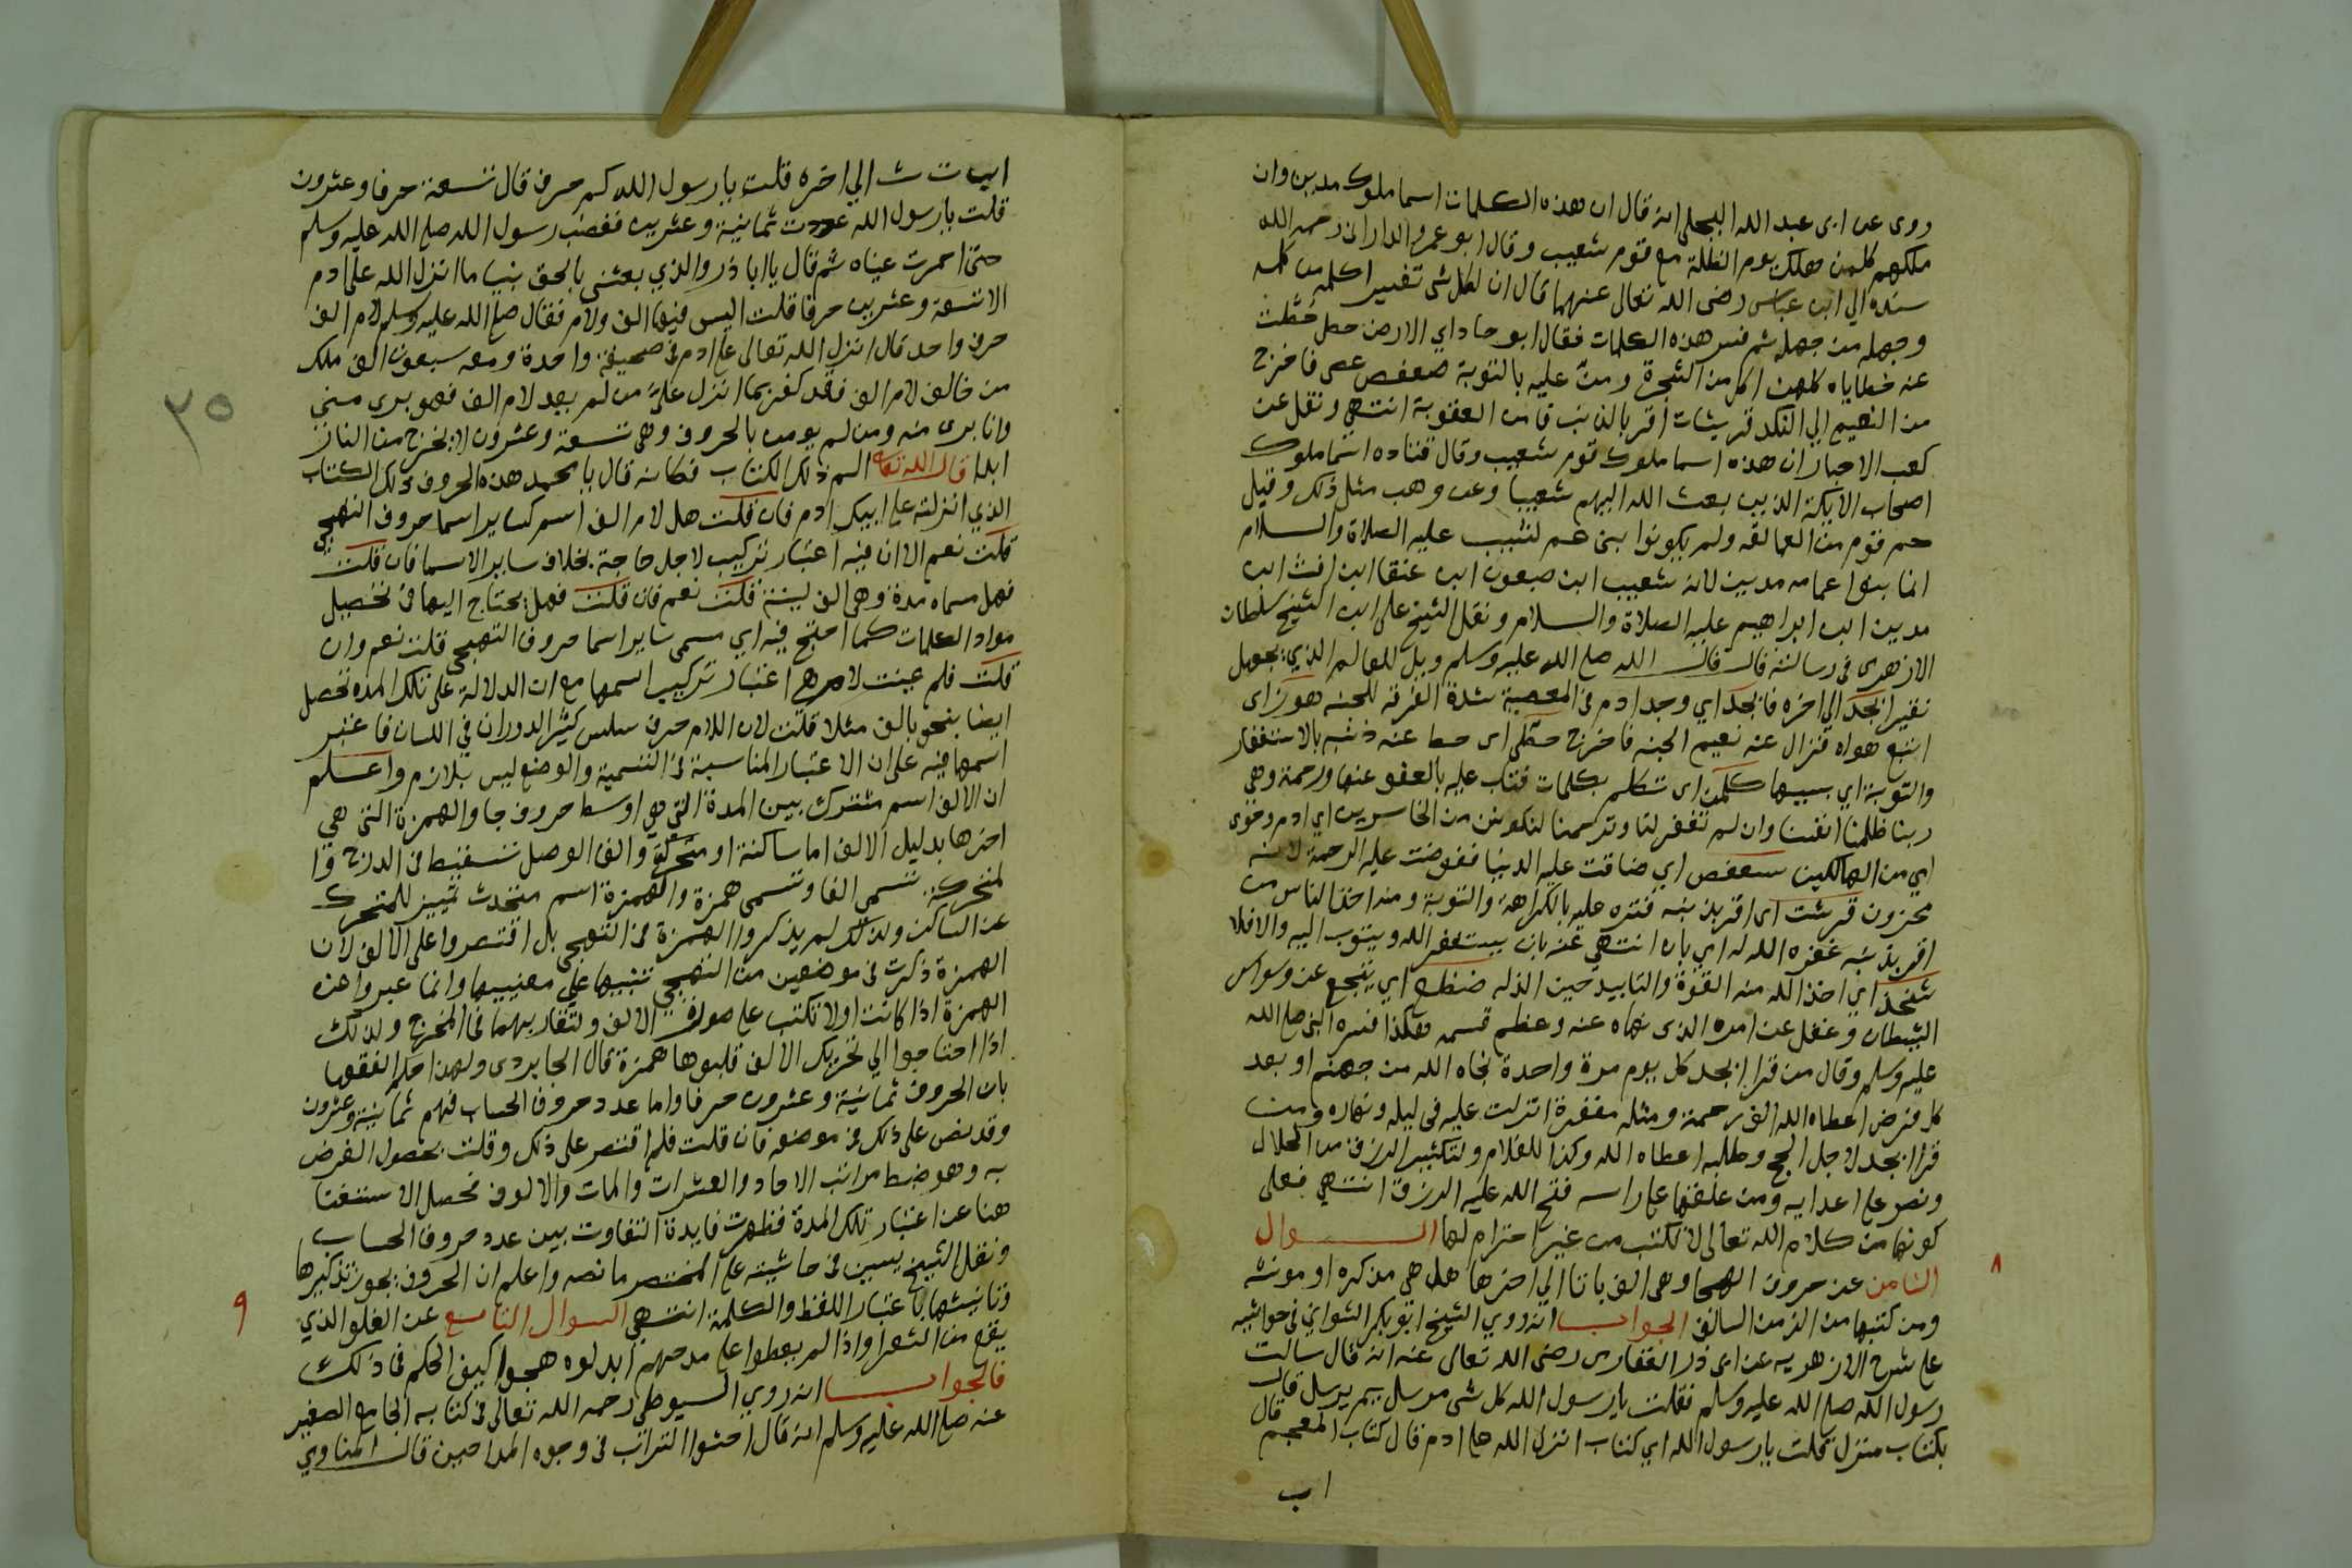 روى عن ابى عبد الله البجلى انه قال ان هذه الكلمات اسما ملوك مدين وان
ملكهم كلمن هلك يوم الظلة مع قوم شعيب وقال ابو عمرو الدانى رحمه الله
سنده الي ابن عباس رضى الله تعالى عنهما قال ان لكل شى تفسيرا علمه من علمه
وجهله من جهله ثم فسر هذه الكلمات فقال ابو جاد اي الارض حطى حطت
عنه خطاياه كلمن اكل من الشجرة ومن عليه بالتوبة صعفص عصى فاخرج
من النعيم الي النكد قريشات اقر بالذنب فامن العقوبة انتهي ونقل عن
كعب الاحبار ان هذه اسما ملوك قوم شعيب وقال قتاده اسما ملوك
اصحاب الايكة الذين بعث الله اليهم شعيبا وعن وهب مثل ذلك وقيل
هم قوم من العمالقه ولم يكونوا بنى عم لشعيب عليه الصلاة والسلام
انما بنوا عمامه مدين لانه شعيب ابن صيعون ابن عنقا ابن
مدين ابن ابراهيم عليه الصلاة والسلام ونقل الشيخ على ابن الشيخ سلطان
الازهرى في رسالته قال قال رسول الله صلى الله عليه وسلم ويل للعالم الذي يجهل
تفسير ابجد الي اخره فابجد اي وجد ادم فى المعصية شدة الفرقه للجنه هوز اى
اتبع هواه فزال عنه نعيم الجنه فاخرج حطى اى حط عنه ذنبه بالاستغفار
والتوبة اي بسببها كلمن اى تكلم بكلمات فتاب عليه بالعفو عنها ورحمة وهي
ربنا ظلمنا انفسنا وان لم تغفر لنا وترحمنا لنكونن من الخاسرين اي ادم وحوى
اي من الهالكين سعفص اي ضاقت عليه الدنيا ففوضت عليه الرحمة لانه
محزون قرشت اى اقر بذنبه
اقر بذنبه غفره الله له اي بان انتهي عنه بان يستغفر الله ويتوب اليه والا فلا
ثخذ اي اخذ الله منه القوة والتابيد حين الذله ضظغ اي عن وسواس
الشيطان وغفل عن امره الذى نهاه عنه وعظم قسمه هكذا فسره النبى صلى الله
عليه وسلم وقال من قرا ابجد كل يوم مرة واحدة نجاه الله من جهنم او بعد
كل فرض اعطاه الله الف رحمة ومثله مغفرة انزلت عليه فى ليله ونهاره ومن
قرا ابجد لاجل الحج وطلبه اعطاه الله وكذا للغلام ولتكثير الرزق من الحلال
ونصر على اعدايه ومن علقها على راسه فتح الله عليه الرزق انتهي فعلى
كونها من كلام الله تعالى لا تكتب من غير احترام لها السوال
الثامن عن حروف الهجا وهى الف با تا الي اخرها هل هي مذكره او مونثه
ومن كتبها من الزمن السالف الجواب انه روي الشيخ ابو بكر الشنوانى فى حواشيه
على شرح الازهريه عن ابى ذر الغفارى رضى الله تعالى عنه انه قال سالت
رسول الله صلى الله عليه وسلم فقلت يا رسول الله كل شى مرسل بم يرسل قال
بكتاب منزل قلت يا رسول الله اي كتاب انزل الله على ادم قال كتاب المعجم قال
ا ب
٨
ا ب ت ث الي اخره قلت يا رسول الله كم حرف قال تسعة حرفا وعشرون
قلت يا رسول الله عددت ثمانية وعشرين فغضب رسول الله صلى الله عليه وسلم
حتى احمرت عيناه ثم قال يا ابا ذر والذي بعثنى بالحق نبيا ما انزل الله على ادم
الا تسعة وعشرين حرفا قلت اليس فيها الف ولام فقال صلى الله عليه وسلم لام الف
حرف واحد قال انزل الله تعالى على ادم فى صحيفة واحدة ومعه سبعون الف ملك
من خالف لام الف فقد كفر بما انزل علىّ من لم يعد لام الف فهو برى منى
وانا برى منه ومن لم يومن بالحروف وهى تسعة وعشرون لا يخرج من النار
ابدا قال الله تعالى الم ذلك الكتاب فكانه قال يا محمد هذه الحروف ذلك الكتاب
الذي انزلته على ابيك ادم فان قلت هل لام الف اسم كساير اسما حروف التهجي
قلت نعم الا ان فيه اعتبار تركيب لاجل حاجة بخلاف ساير الاسما فان قلت
فهل مسماه مدة وهى الف لينة قلت نعم فان قلت فهل يحتاج اليها فى تحصيل
مواد الكلمات كما احتج فيه اي مسمى ساير اسما حروف التهجي قلت نعم وان
قلت فلم عينت لام اعتبار تركيب اسمها مع ان الدلالة على تلك المده تحصل
ايضا بنحو بالف مثلا قلت لان اللام حرف سلس كثير الدوران فى اللسان فاعتبر
اسمها فيه على ان الاعتبار المناسبة فى التسمية والوضع ليس بلازم واعلم
ان الالف اسم مشترك بين المدة التى هي اوسط حروف جا والهمزة التى هي
اخرها بدليل الالف اما ساكنة او متحركة والف الوصل تسقط فى الدرج وا
لمتحركة تسمى الفا وتسمى همزة والهمزة اسم مستحدث تمييز للمتحرك
عن الساكن ولذلك لم يذكروا الهمزة فى التهجي بل اقتصروا على الالف لان
الهمزة ذكرت فى موضعين من التهجي تنبيها على معنييها وانما عبروا هذه
الهمزة اذا كانت اولا تكتب على صورة الالف ولتقاربهما فى المخرج ولذلك
اذا احتاجوا الي تحريك الالف قلبوها همزة قال الجاربردى ولهذا حكم الفقها
بان الحروف ثمانية وعشرون حرفا واما عدد حروف الحساب فهم ثمانية وعشرون
وقد نص على ذلك فى موضعه فان قلت فلم اقتصر على ذلك وقلت بحصول الغرض
به وهو ضبط مراتب الاحاد والعشرات والمات والالوف فحصل الاستغنا
هنا عن اعتبار تلك المدة فظهرت فايدة التفاوت بين عدد حروف الحساب
ونقل الشيخ يسين فى حاشيته على المختصر ما نصه واعلم ان الحروف يجوز تذكيرها
وتانيثها باعتبار اللفظ والكلمة انتهي السوال التاسع عن الغلو الذي
يقع من الشعرا واذا لم يعطوا على مدحهم ابدلوه هجوا كيف الحكم فى ذلك
فالجواب انه روي السيوطى رحمه الله تعالى فى كتابه الجامع الصغير
عنه صلى الله عليه وسلم انه قال احثوا التراب فى وجوه المداحين قال المناوي
٩
٢٥